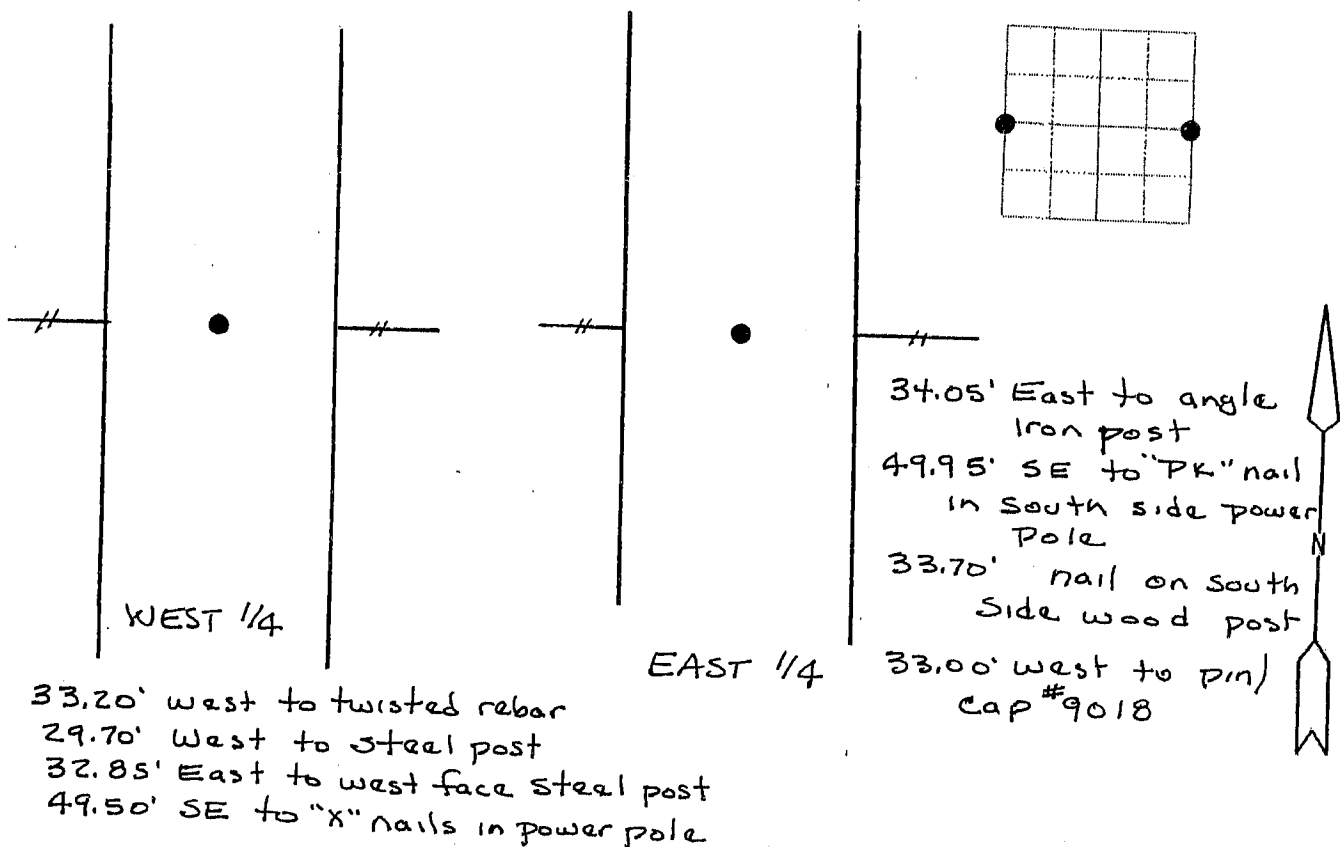 WEST 1/4
33.20' west to twisted rebar
29.70' West to steel post
32.85' East to west face steel post
49.50' SE to "X" nails in power pole
EAST 1/4
34.05' East to angle
Iron post
49.95' SE to "PK" nail
in south side power
Pole
33.70' nail on south
Side wood post
33.00' west to pin/
Cap #9018
N